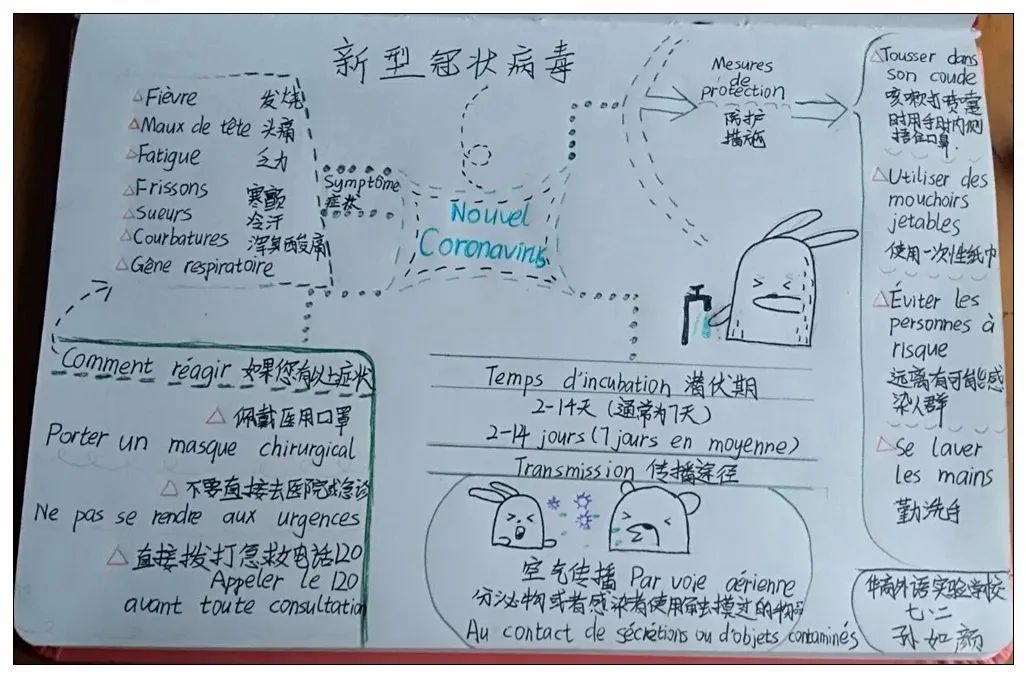 新型冠状病毒
Nouvel
Coronavirus
Symptôme
症状
Fièvre 发烧
Maux de tête 头痛
Fatigue 乏力
Frissons 寒颤
Sueurs 冷汗
Courbatures 浑身酸痛
Gêne respiratoire
Mesures
de
protection
防护
措施
Tousser dans
son coude
咳嗽打喷嚏
时用手肘内侧
捂住口鼻.
Utiliser des
mouchoirs
jetables
使用一次性纸巾
Éviter les
personnes à
risque
远离有可能感
染人群
Se laver
les mains
勤洗手
Comment réagir 如果您有以上症状
佩戴医用口罩
Porter un masque chirurgical
不要直接去医院或急诊
Ne pas se rendre aux urgences
直接拨打急救电话120
Appeler le 120
avant toute consultation
Temps d'incubation 潜伏期
2-14天（通常为7天）
2-14 jours (7 jours en moyenne)
Transmission 传播途径
空气传播 Par voie aérienne
分泌物或者感染者使用 触摸过的物
Au contact de sécrétions ou d'objets contaminés
外语实验学校
七·二
孙如颜